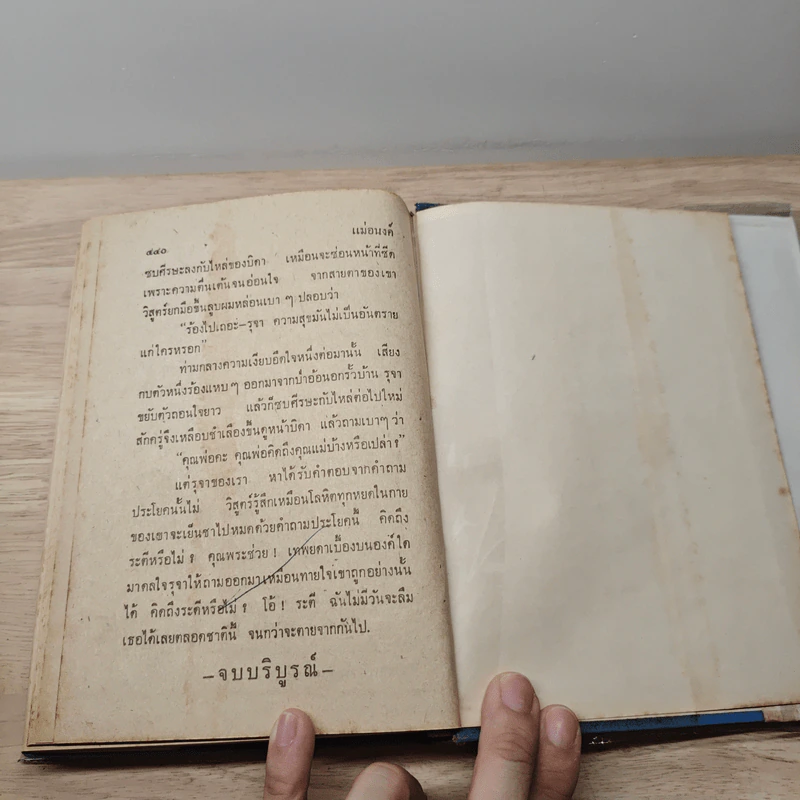 ๕๔๐ แม่อนงค์
ซบศีรษะลงกับไหล่ของบิดา เหมือนจะซ่อนหน้าที่ซีด
เพราะความตื่นเต้นจนอ่อนใจ จากสายตาของเขา
วิสูตร์ยกมือขึ้นลูบผมหล่อนเบา ๆ ปลอบว่า
“ร้องไปเถอะ–รุจา ความสุขมันไม่เป็นอันตราย
แก่ใครหรอก”
ท่ามกลางความเงียบอึดใจหนึ่งต่อมานั้น เสียง
กบตัวหนึ่งร้องแหบ ๆ ออกมาจากป่าอ้อนอกรั้วบ้าน รุจา
ขยับตัวถอนใจยาว แล้วก็ซบศีรษะกับไหล่ต่อไปใหม่
สักครู่จึงเหลือบชำเลืองขึ้นดูหน้าบิดา แล้วถามเบาๆ ว่า
“คุณพ่อคะ คุณพ่อคิดถึงคุณแม่บ้างหรือเปล่า?”
แต่รุจาของเรา หาได้รับคำตอบจากคำถาม
ประโยคนั้นไม่ วิสูตร์รู้สึกเหมือนโลหิตทุกหยดในกาย
ของเขาจะเย็นชาไปหมดด้วยคำถามประโยคนี้ คิดถึง
ระตีหรือไม่? คุณพระช่วย! เทพยดาเบื้องบนองค์ใด
มาดลใจรุจาให้ถามออกมาเหมือนทายใจเขาถูกอย่างนั้น
ได้ คิดถึงระตีหรือไม่? โอ้! ระตี ฉันไม่มีวันจะลืม
เธอได้เลยตลอดชาตินี้ จนกว่าจะตายจากกันไป.
–จบบริบูรณ์–